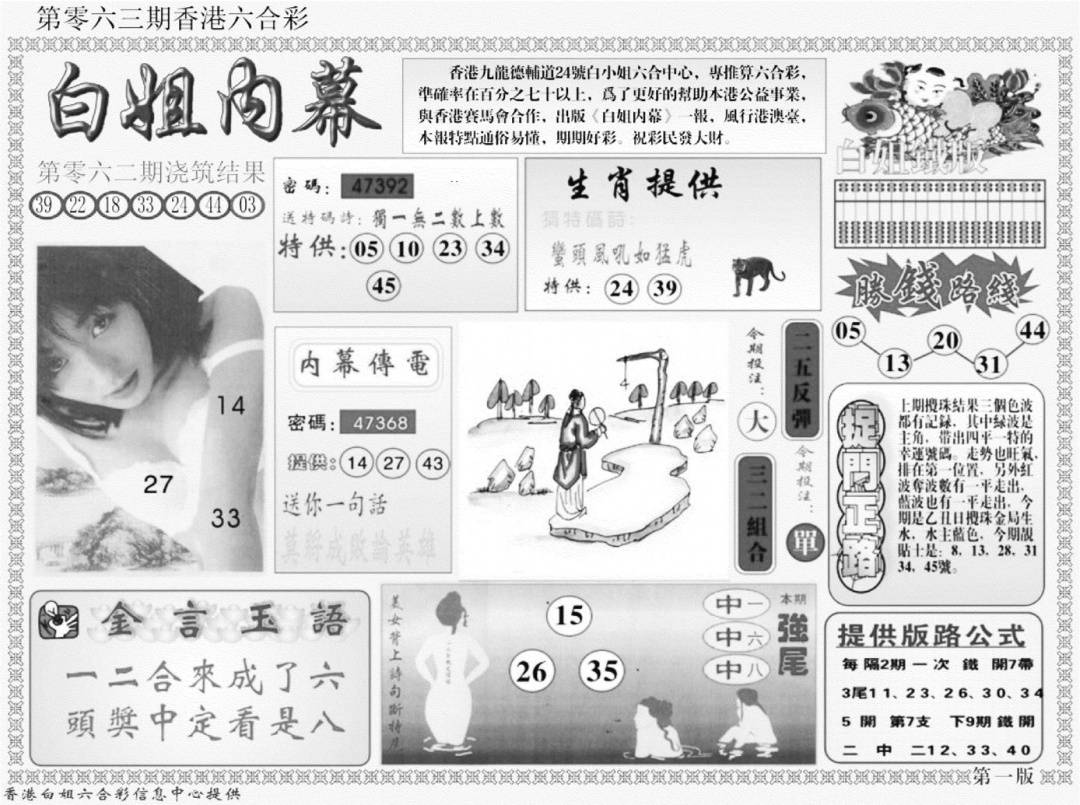 第零六三期香港六合彩
白姐内幕
香港九龍德輔道24號白小姐六合中心，專推算六合彩，
準確率在百分之七十以上，爲了更好的幫助本港公益事業，
與香港賽馬會合作，出版《白姐内幕》一報，風行港澳臺，
本報特點通俗易懂，期期好彩。祝彩民發大財。
第零六二期浇筑结果
39 22 18 33 24 44 03
密碼：47392
送特碼詩：獨一無二數上數
特供：05 10 23 34
45
生肖提供
猜特碼詩：
蠻頭風吼如猛虎
特供：24 39
白姐鐵版
勝錢路线
05 13 20 31 44
14
27
33
内幕傳電
密碼：47368
提供：14 27 43
送你一句話
莫將成敗論英雄
今期投注：大
二五反彈
三二組合
今期投注：單
捉門正路
上期攪珠结果三個色波
都有記録，其中緑波是
主角，帶出四平一特的
幸運號碼。走勢也旺氣，
排在第一位置，另外紅
波奪波數有一平走出，
藍波也有一平走出，今
期是乙丑日攪珠金局生
水，水主藍色，今期靚
貼士是：8、13、28、31
34、45號。
金言玉語
一二合來成了六
頭獎中定看是八
美女背上詩句斷特尾
15
26 35
中一
中六
中八
本期
強尾
提供版路公式
每隔2期一次 鐵 開7帶
3尾11、23、26、30、34
5 開 第7支 下9期鐵開
二 中 二12、33、40
第一版
香港白姐六合彩信息中心提供